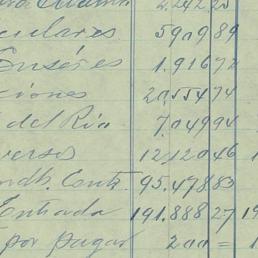 2.242 25
culares 590 9 89
Enséres 1.916 72
ciones 20,554 74
del Rio 7.049 94
versos 12,120 46 1
Contr. 95.478 83
Entrada 191.888 27 19
por pagar 200 = 1